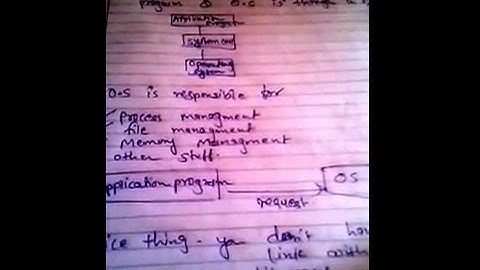 program & O.S is through a
Application
program
System call
Operating
System
O.S is responsible for
Process managment
file managment
Memory Managment
other stuff.
pplication program
OS
request
ice thing. you don't hav
link with